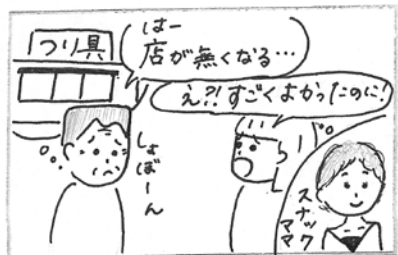 つり具
はー
店が無くなる…
え?!すごくよかったのに!
しょぼーん
スナック
ママ